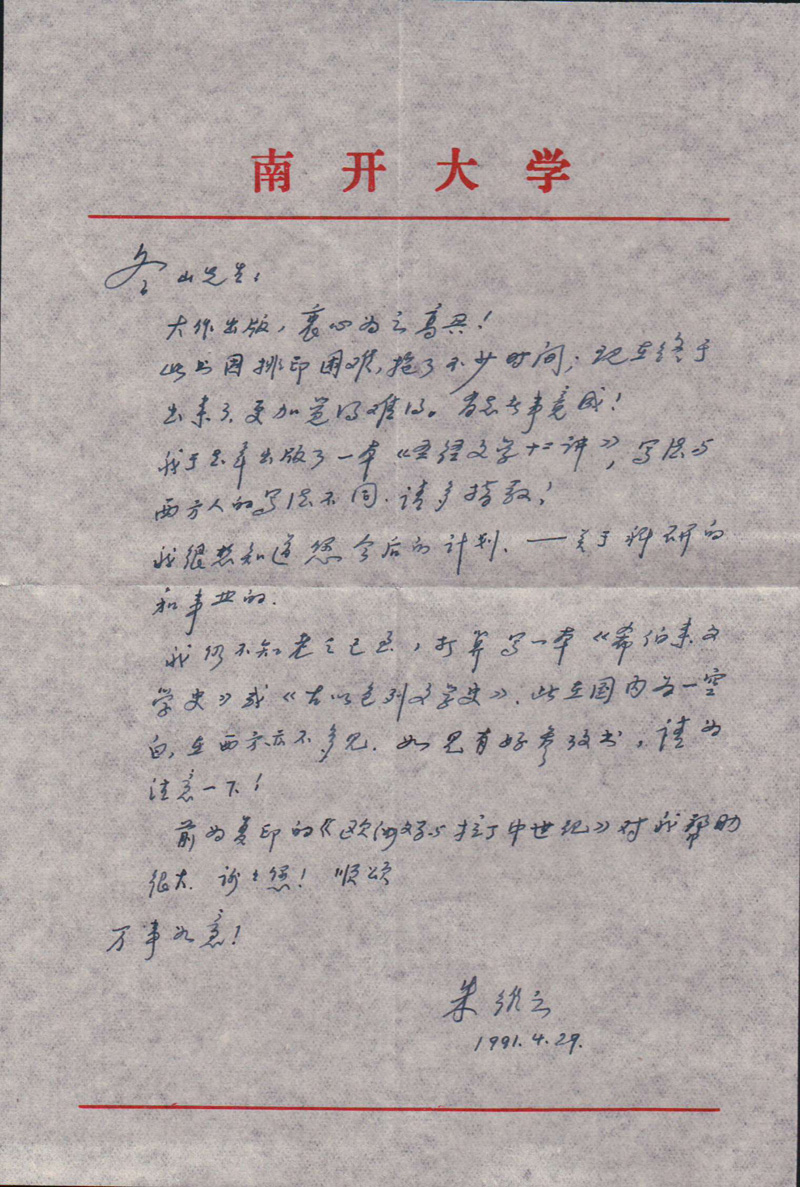 南开大学
冬山先生:
大作出版,衷心为之高兴!
此书因排印困难,拖了不少时间;现在终于
出来了,更加觉得难得。有志者事竟成!
我于去年出版了一本《圣经文学十二讲》,写法与
西方人的写法不同.请多指教!
我很想知道您今后的计划、——关于科研的
和事业的.
我仍不知老之已至,打算写一本《希伯来文
学史》或《古以色列文学史》.此在国内为一空
白,在西方亦不多见.如见有好参考书,请为
注意一下!
前为复印的《欧洲文学与拉丁中世纪》对我帮助
很大.谢谢您!顺颂
万事如意!
朱维之
1991.4.29.